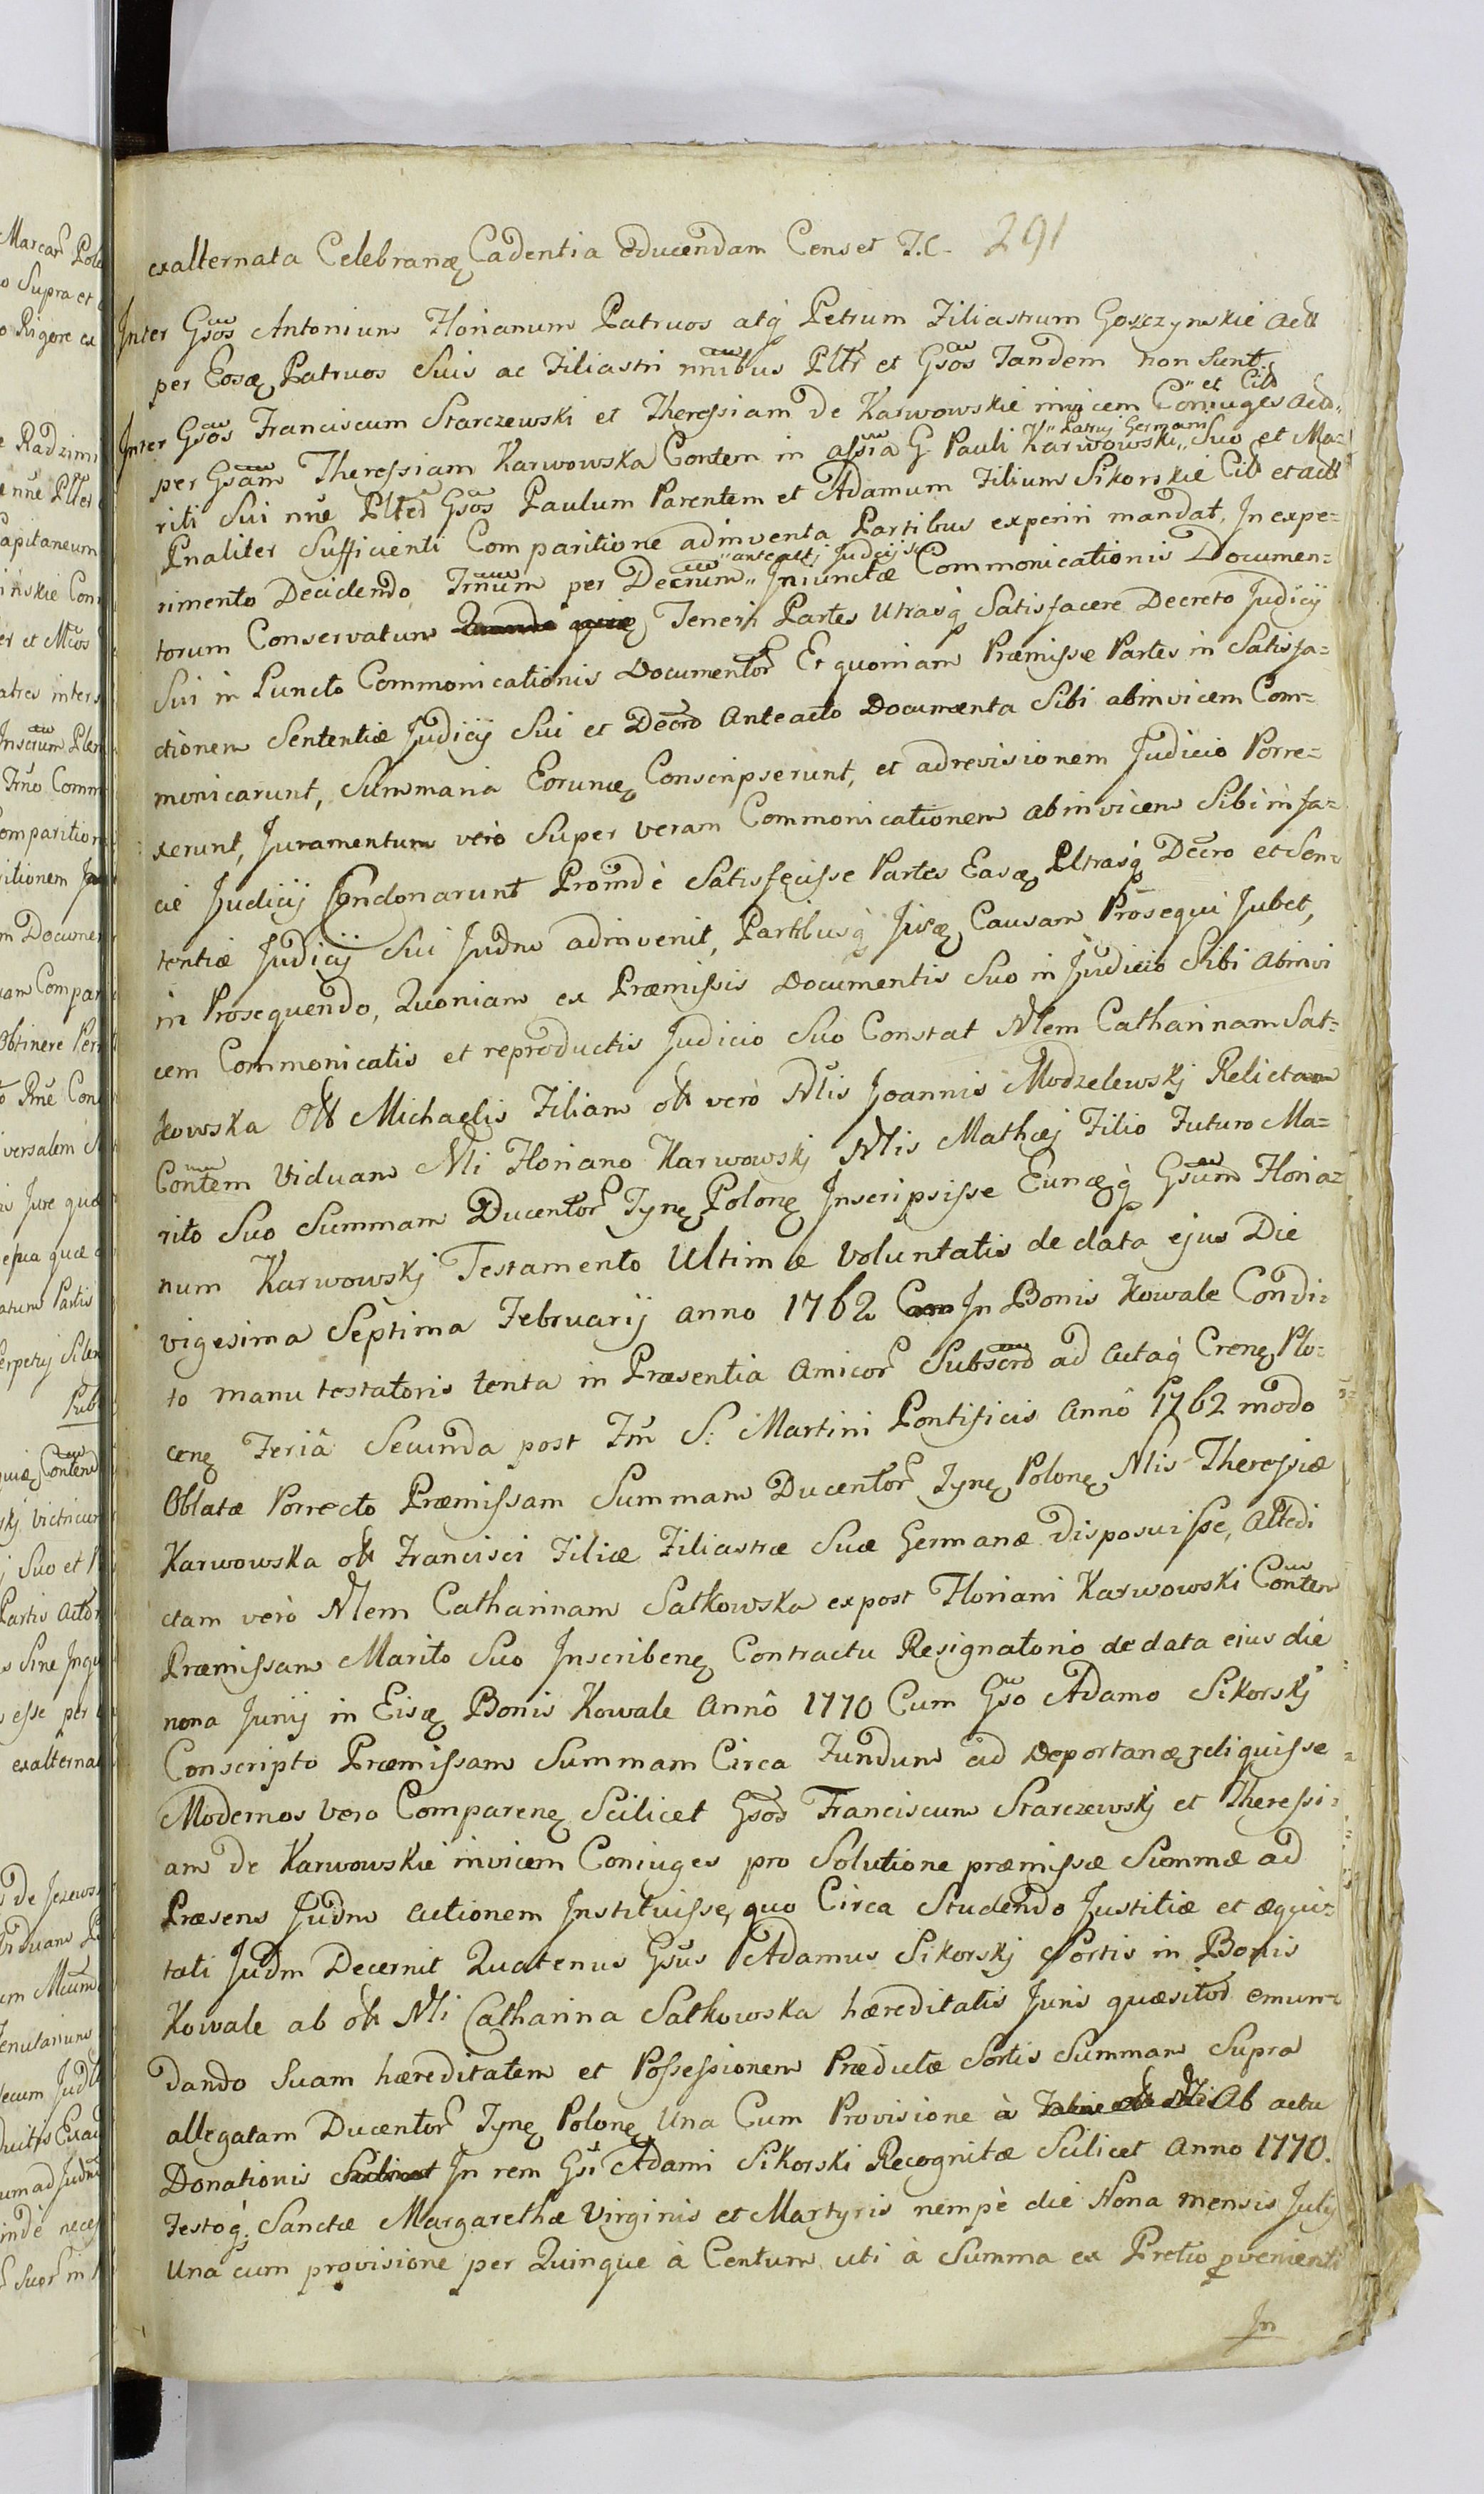 291
exalternata Celebranæ Cadentia educendam Censet J.C.
Inter Gsos Antonium Florianum Patruos atq Petrum Filiastrum Goszczynskie actt
per Eosq Patruos Suis ac Filiastri nnibus Pltr et Gsos Tandem non Sunt
et Citt
Inter Gsos Franciscum Starczewski et Theressiam de Karwowskie invicem Coniuges actt
Patruj Germani
per Gsam Theressiam Karwowska Contem in assia G Pauli Karwowski Suo et Ma-
riti Sui nne Plted Gsos Paulum Parentem et Adamum Filium Sikorskie Citt et actt
Pnaliter Sufficienti Comparitione adinventa Partibus experiri mandat, In expe=
anteacti Judicij
rimento Decidendo Trnum per Decrum Iniunctæ Commonicationis Documen=
torum Conservatum Teneri Partes Utrasq Satisfacere Decreto Judicij
Sui in Puncto Commonicationis Documentor Et quoniam Præmissæ Partes in Satisfa=
ctionem Sententiæ Judicij Sui et Decro Anteacto Documenta Sibi abinvicem Com=
monicarunt, Summaria Eorumq Conscripserunt, et ad revisionem Judicio Porre=
xerunt, Juramentum verò Super veram Commonicationem abinvicem Sibi in fa=
cie Judicij Condonarunt Proindè Satisfecisse Partes Easq Utrasq Decro et Sen=
tentiæ Judicij Sui Judm adinvenit, Partibusq Jisq Causam Prosequi Jubet,
in Prosequendo, Quoniam ex Præmissis Documentis Suo in Judicio Sibi abinvi
cem Commonicatis et reproductis Judicio Suo Constat Mlem Catharinam Sat=
kowska Ott Michaelis Filiam ott verò Mlis Joannis Modzelewskj Relictam
Contem Viduam Nli Floriano Karwowskj Nlis Mathæj Filio Futuro Ma=
rito Suo Summam Ducentor Tynę Polonę Inscripsisse Eumqq Gsum Floria=
num Karwowskj Testamento Ultimæ Voluntatis de data ejus Die
vigesima Septima Februarij anno 1762 In Bonis Kowale Condi=
to manu testatoris tenta in Præsentia Amicor Subscro ad Actaq Crenę Plo=
cenę Feriâ Secunda post Fm S: Martini Pontificis Annô 1762 modo
Oblatæ Porrecto Præmissam Summam Ducentor Tynę Polonę Nlis Theressiæ
Karwowska ott Francisci Filiæ Filiastræ Suæ Germanæ disposuisse, Altedi
ctam verò Nlem Catharinam Satkowska expost Floriani Karwowski Contem
Præmissam Marito Suo Inscribenę Contractu Resignatorio de data ejus die
nona Junij in Eisq Bonis Kowale Annô 1770 Cum Gso Adamo Sikorskj
Conscripto Præmissam Summam Circa Fundum ad Deportanæ reliquisse
Modernos Vero Comparenę Scilicet Gsos Franciscum Starczewskj et Theressi=
am de Karwowskie invicem Coniuges pro Solutione præmissæ Summæ ad
Præsens Judm Actionem Instituisse, quo Circa Studendo Justitiæ et æqui=
tati Judm Decernit Quatenus Gsus Adamus Sikorskj Sortis in Bonis
Kowale ab ott Nli Catharina Satkowska hæreditatis Juris quæsitor emun=
dando Suam hæreditatem et Possessionem Prædictæ Sortis Summam Supra
allegatam Ducentor Tynę Polonę Una Cum Provisione à Ab actu
Donationis In rem Gsi Adami Sikorski Recognitæ Scilicet Anno 1770.
Festoq Sanctæ Margarethæ Virginis et Martyris nempè die Nona mensis Julij
Una cum provisione per Quinque à Centum uti à Summa ex Pretio pvenienti
In